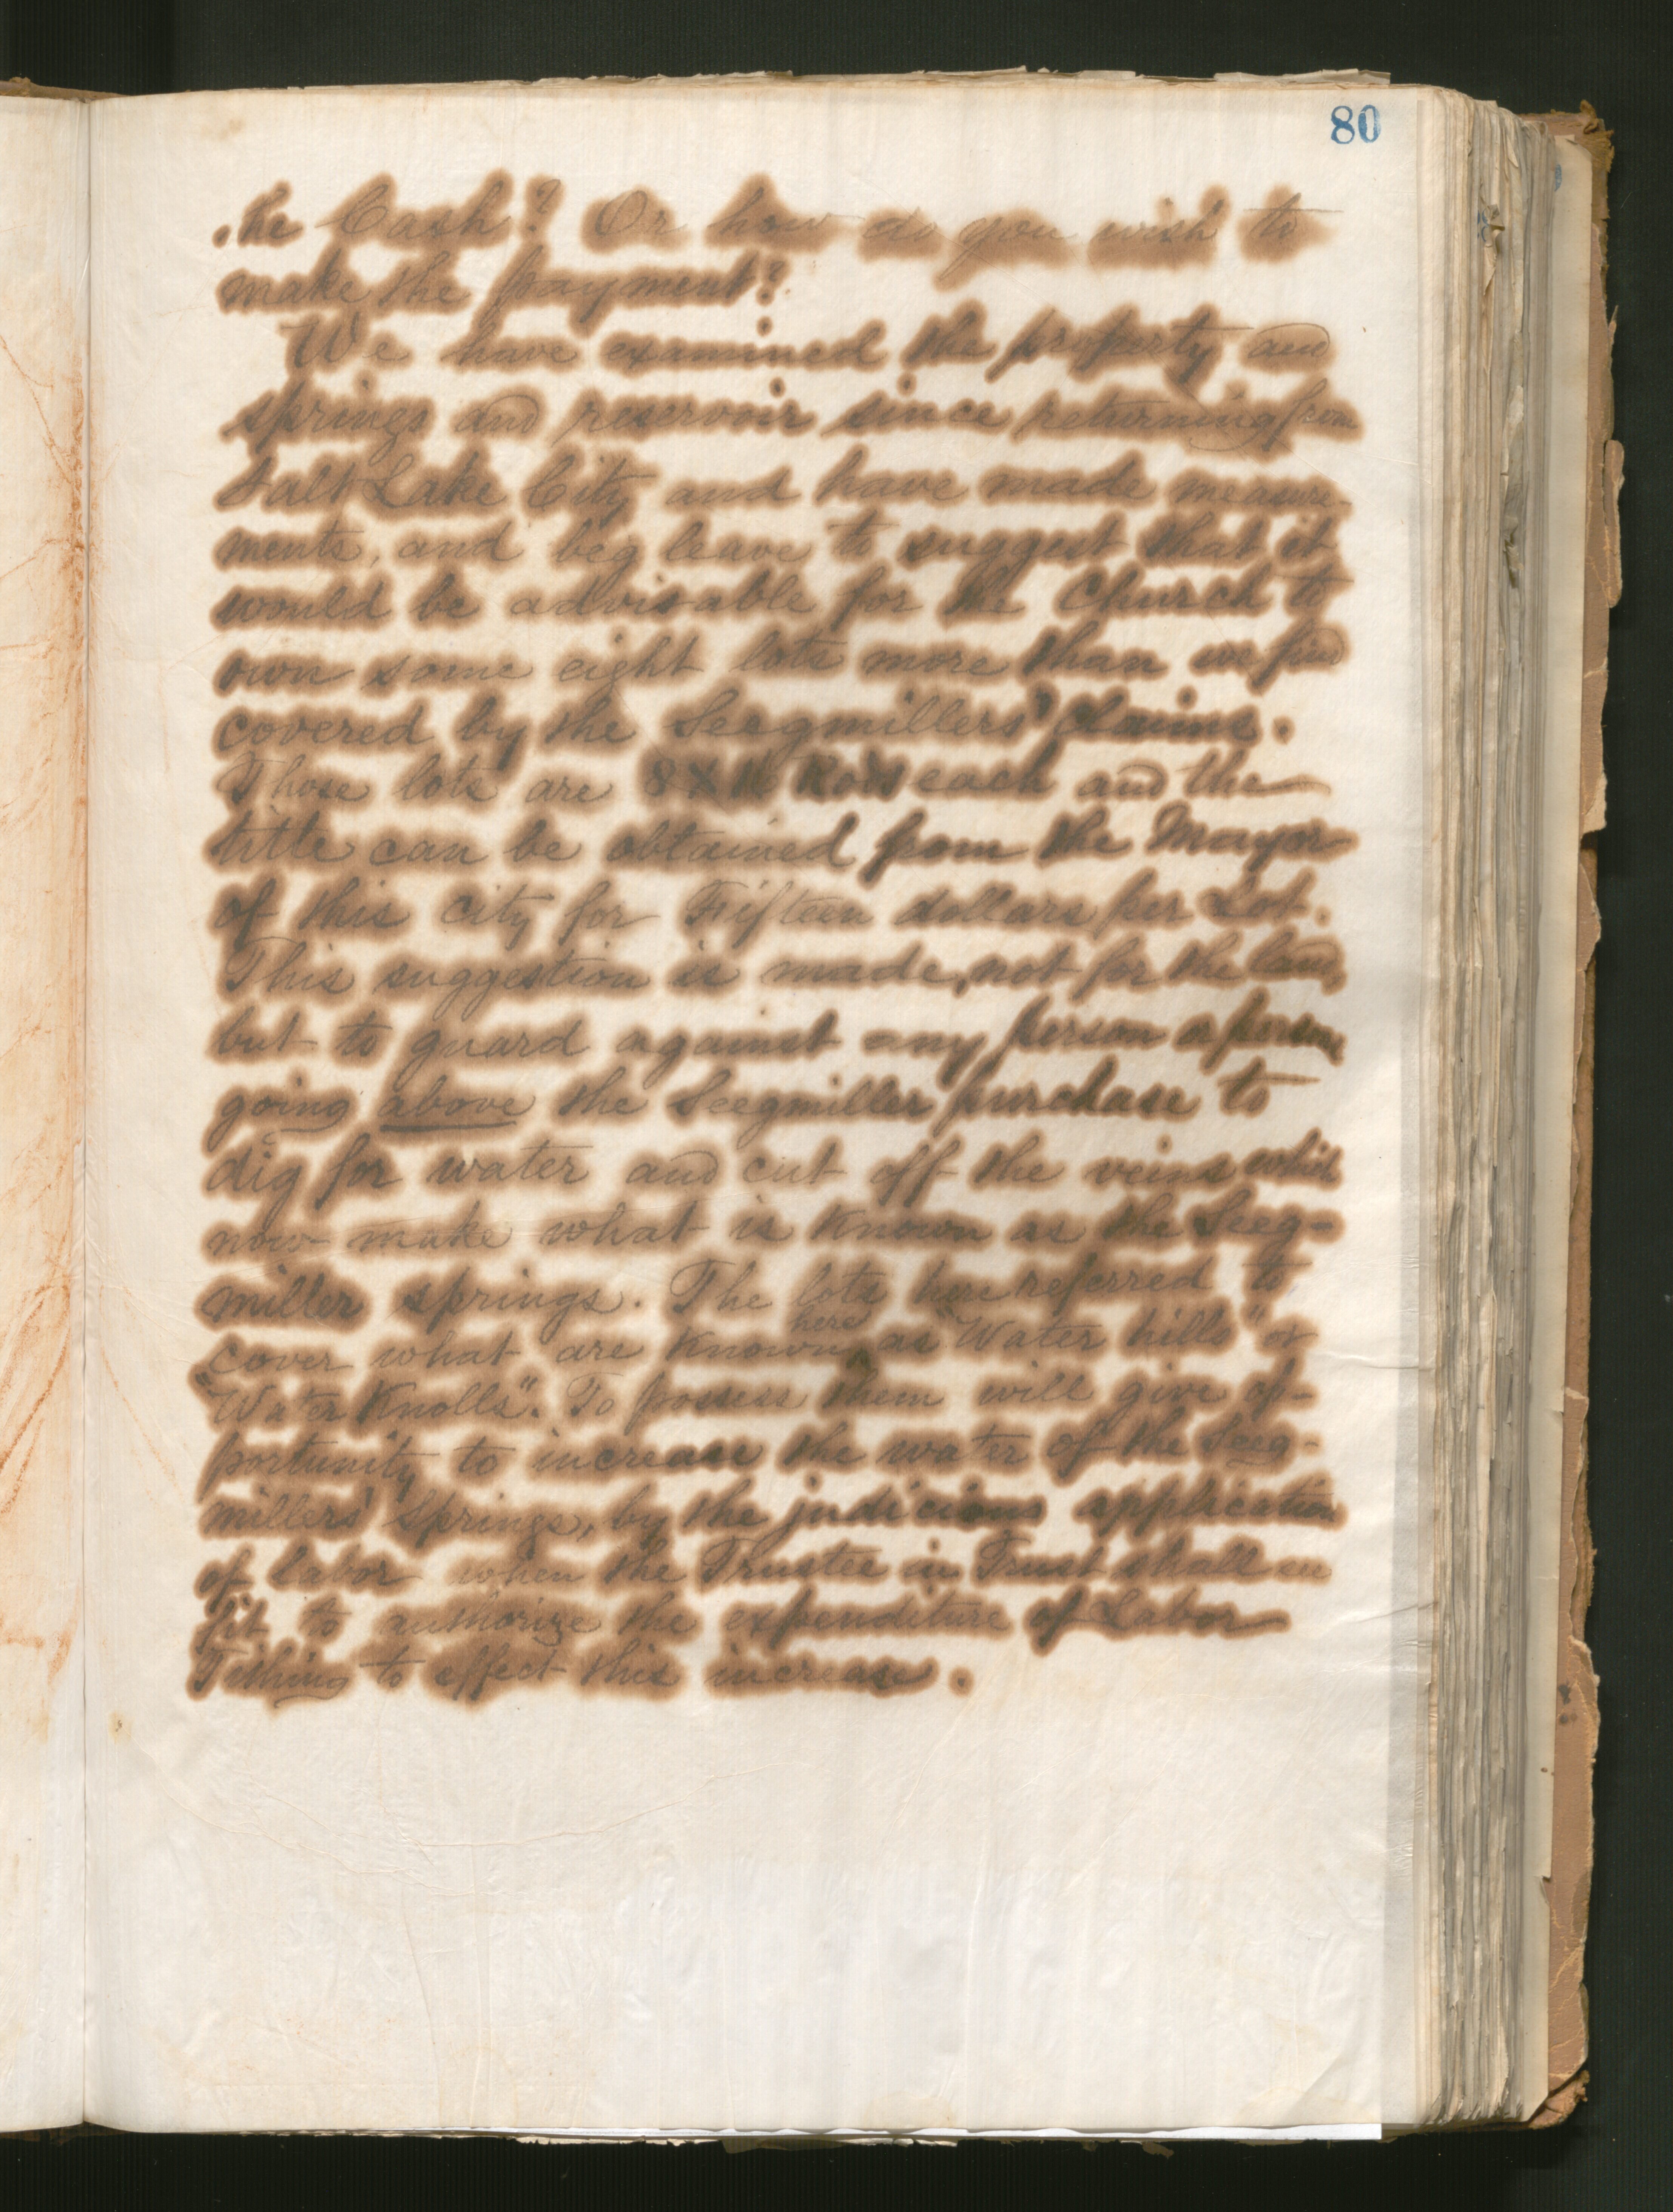 80
the Cash? Or how do you wish to
make the payment?
We have examined the property and
springs and reservoir since returning from
Salt Lake City and have made measure-
ments, and beg leave to suggest that it
would be advisable for the Church to
own some eight lots more than we find
covered by the Seegmillers' claims.
Those lots are 8 X Rods each and the
title can be obtained from the Mayor
of this city for Fifteen dollars per Lot.
This suggestion is made, not for the land,
but to guard against any person or persons
going above the Seegmiller purchase to
dig for water and cut off the veins which
now make what is known as the Seeg-
miller springs. The lots here referred to
cover what are known here as "Water hills" or
"Water Knolls". To possess them will give op-
portunity to increase the water of the Seeg-
millers' Springs, by the judicious application
of labor when the Trustee in Trust shall see
fit to authorize the expenditure of Labor
Tithing to effect this increase.